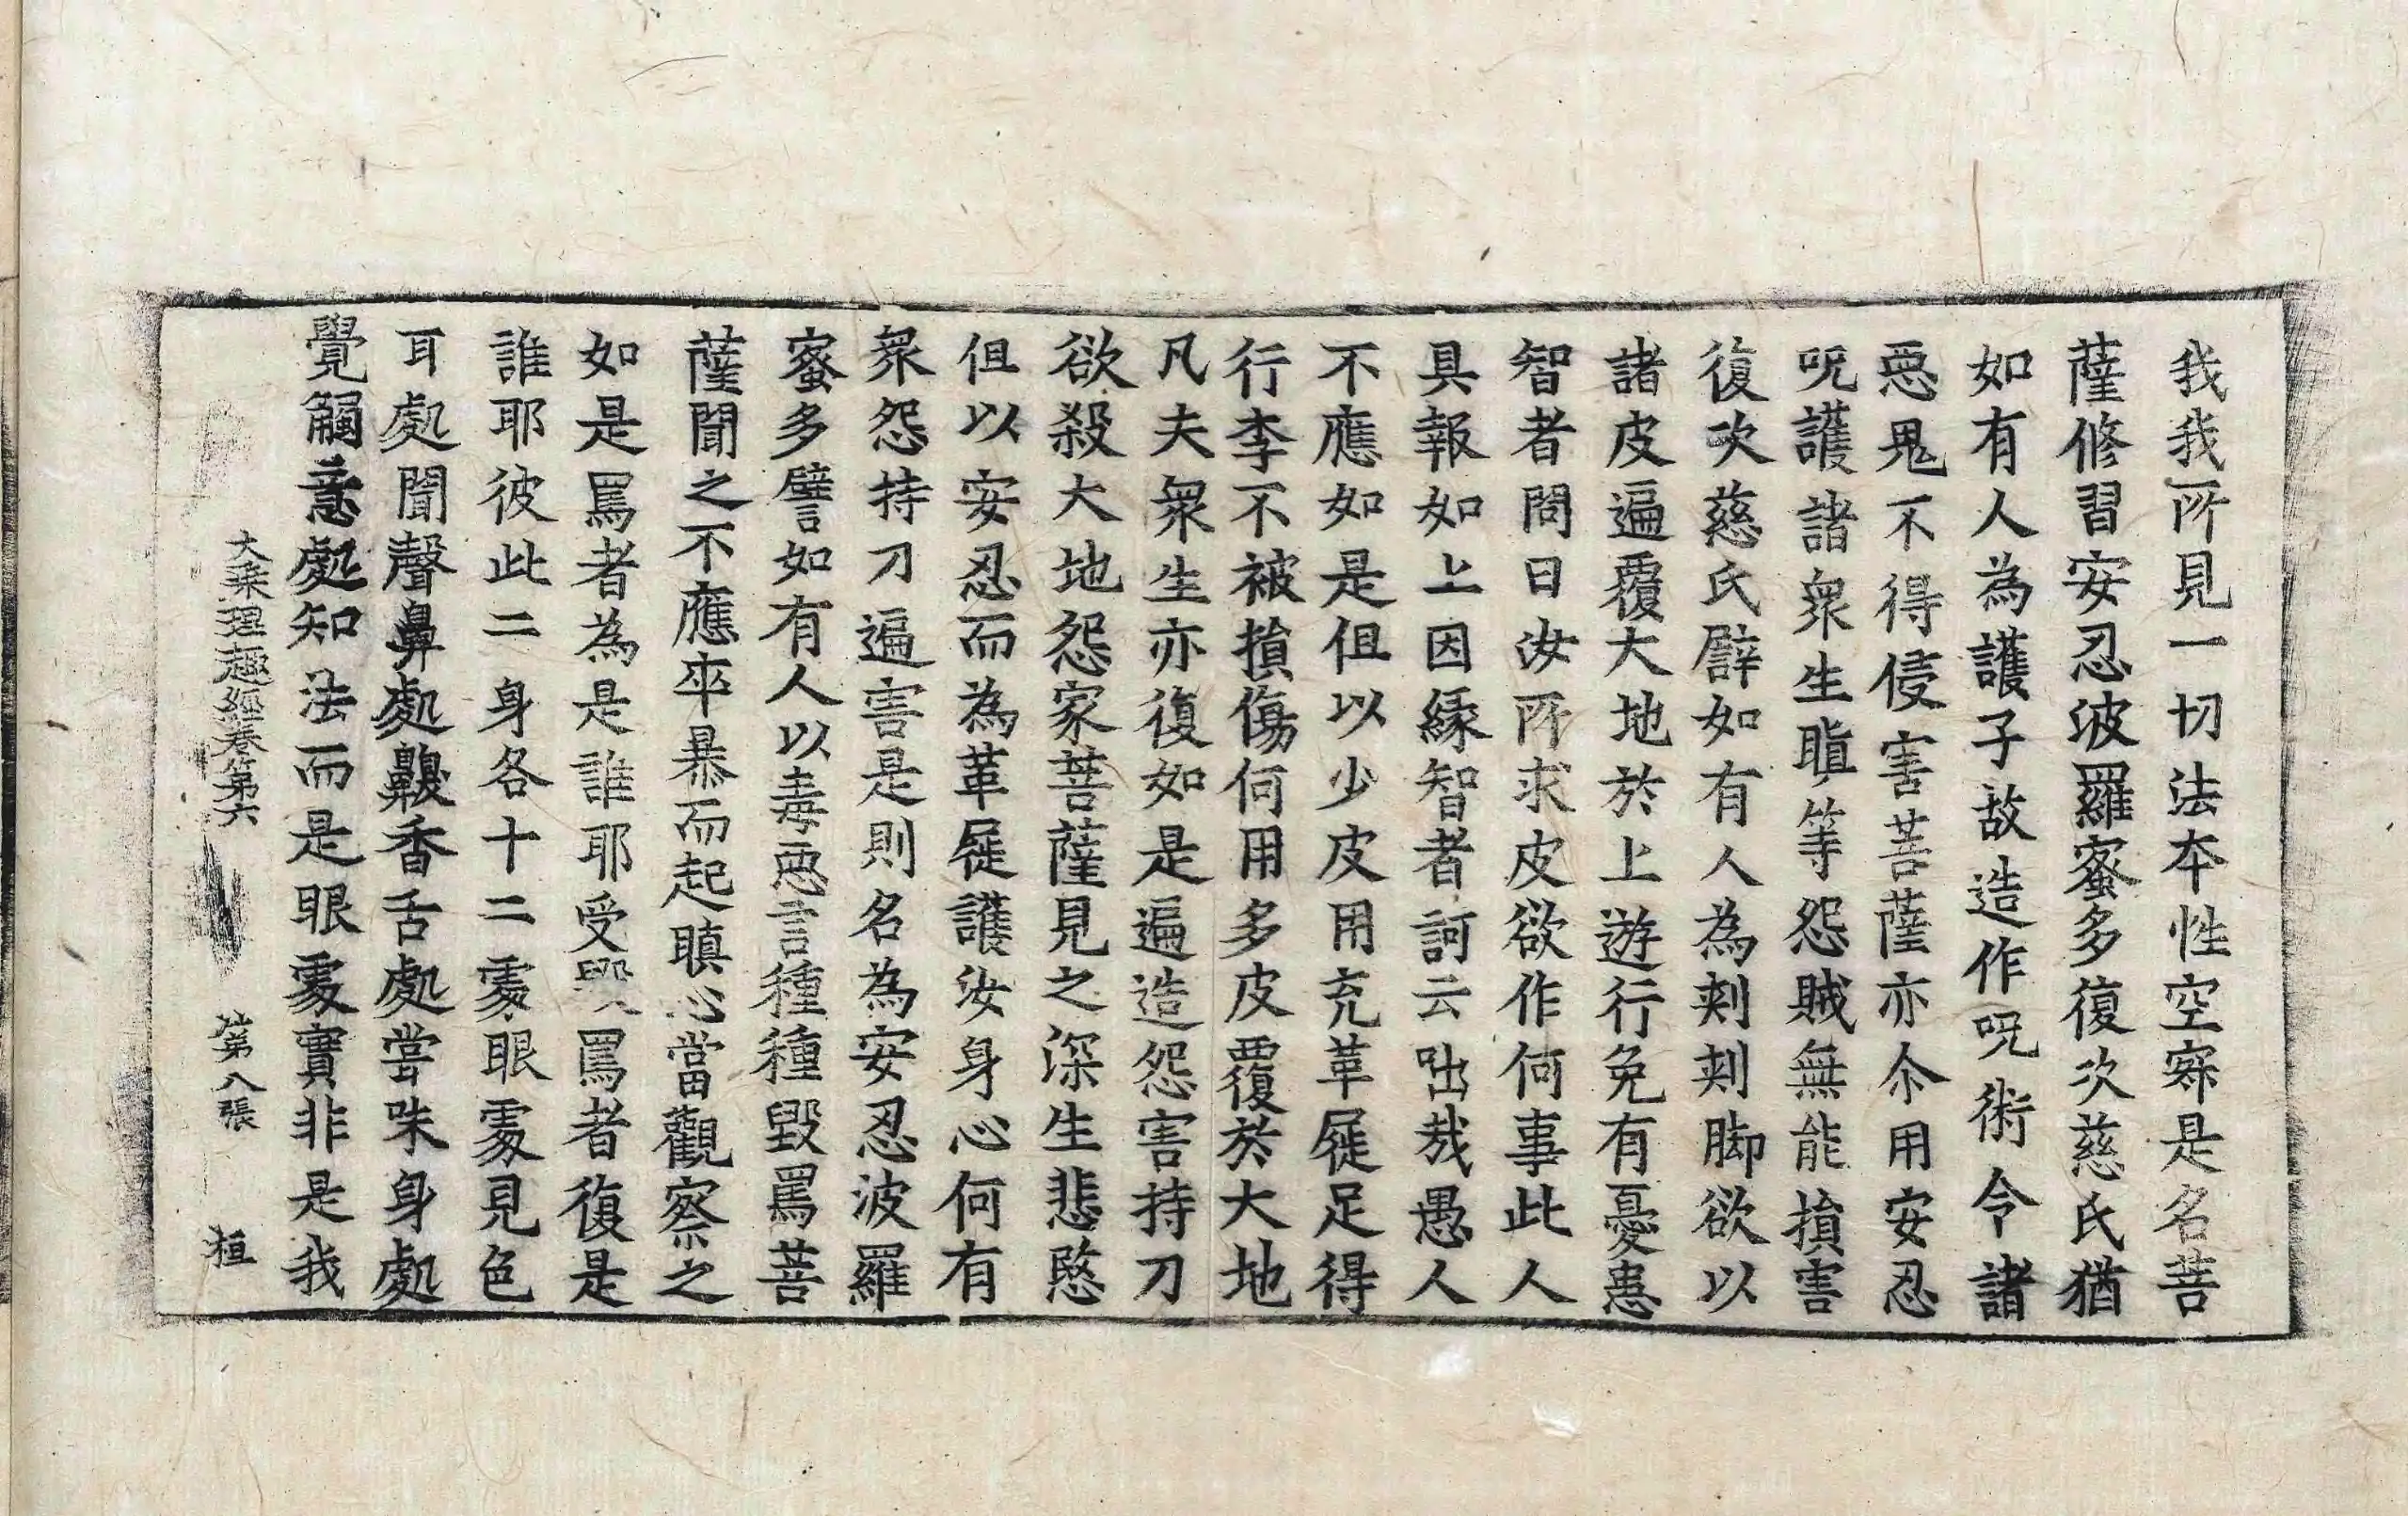 我我所見一切法本性空寂是名菩
薩修習安忍波羅蜜多復次慈氏猶
如有人為護子故造作呪術令諸
惡鬼不得侵害菩薩亦尒用安忍
呪護諸衆生瞋等怨賊無能損害
復次慈氏譬如有人為刺刺脚欲以
諸皮遍覆大地於上遊行免有憂患
智者問曰汝所求皮欲作何事此人
具報如上因緣智者訶云咄哉愚人
不應如是但以少皮用充革屣足得
行李不被損傷何用多皮覆於大地
凡夫衆生亦復如是遍造怨害持刀
欲殺大地怨家菩薩見之深生悲愍
但以安忍而為革屣護汝身心何有
衆怨持刀遍害是則名為安忍波羅
蜜多譬如有人以毒惡言種種毀罵菩
薩聞之不應卒暴而起瞋心當觀察之
如是罵者為是誰耶受毀罵者復是
誰耶彼此二身各十二處眼處見色
耳處聞聲鼻處齅香舌處嘗味身處
覺觸意處知法而是眼處實非是我
大乘理趣經卷第六 第八張 桓